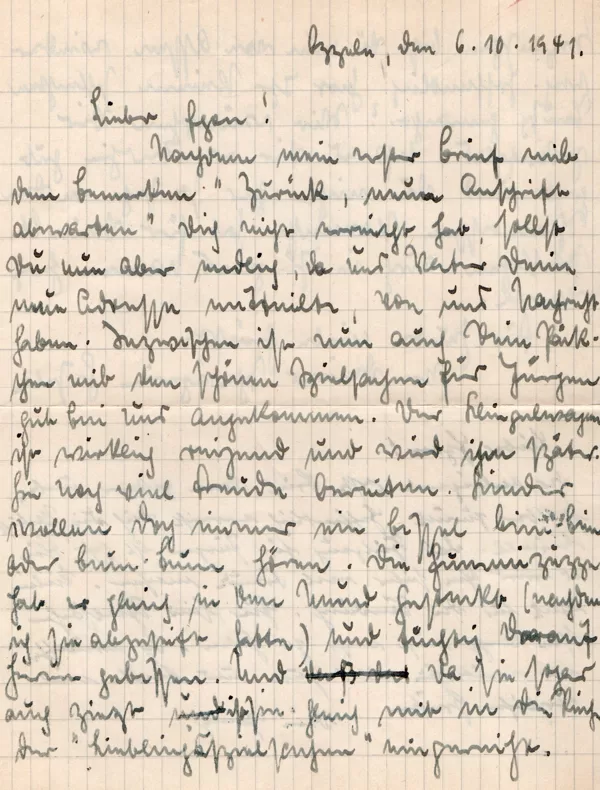 den 6.10.1941.
Lieber Egon!
Nachdem mein erster Brief mit
dem Bemerken "Zurück, neue Anschrift
abwarten" Dich nicht erreicht hat, sollst
Du nun aber endlich, da uns Vater Deine
neue Adresse mitteilte, von uns Nachricht
haben. Inzwischen ist nun auch Dein Päck-
chen mit den schönen Spielsachen für Jürgen
gut bei uns angekommen. Der Klingelwagen
ist wirklich reizend und wird ihm später-
hin noch viel Freude bereiten. Kinder
wollen doch immer ein bissel bim-bim
oder bum bum hören. Die Gummipuppe
hat er gleich in den Mund gesteckt (nachdem
ich sie abgeseift hatte) und tüchtig darauf
herum gebissen. Und da sie sogar
auch piepst ist sie gleich mit in die Reihe
der "Lieblingsspielsachen" eingereiht.